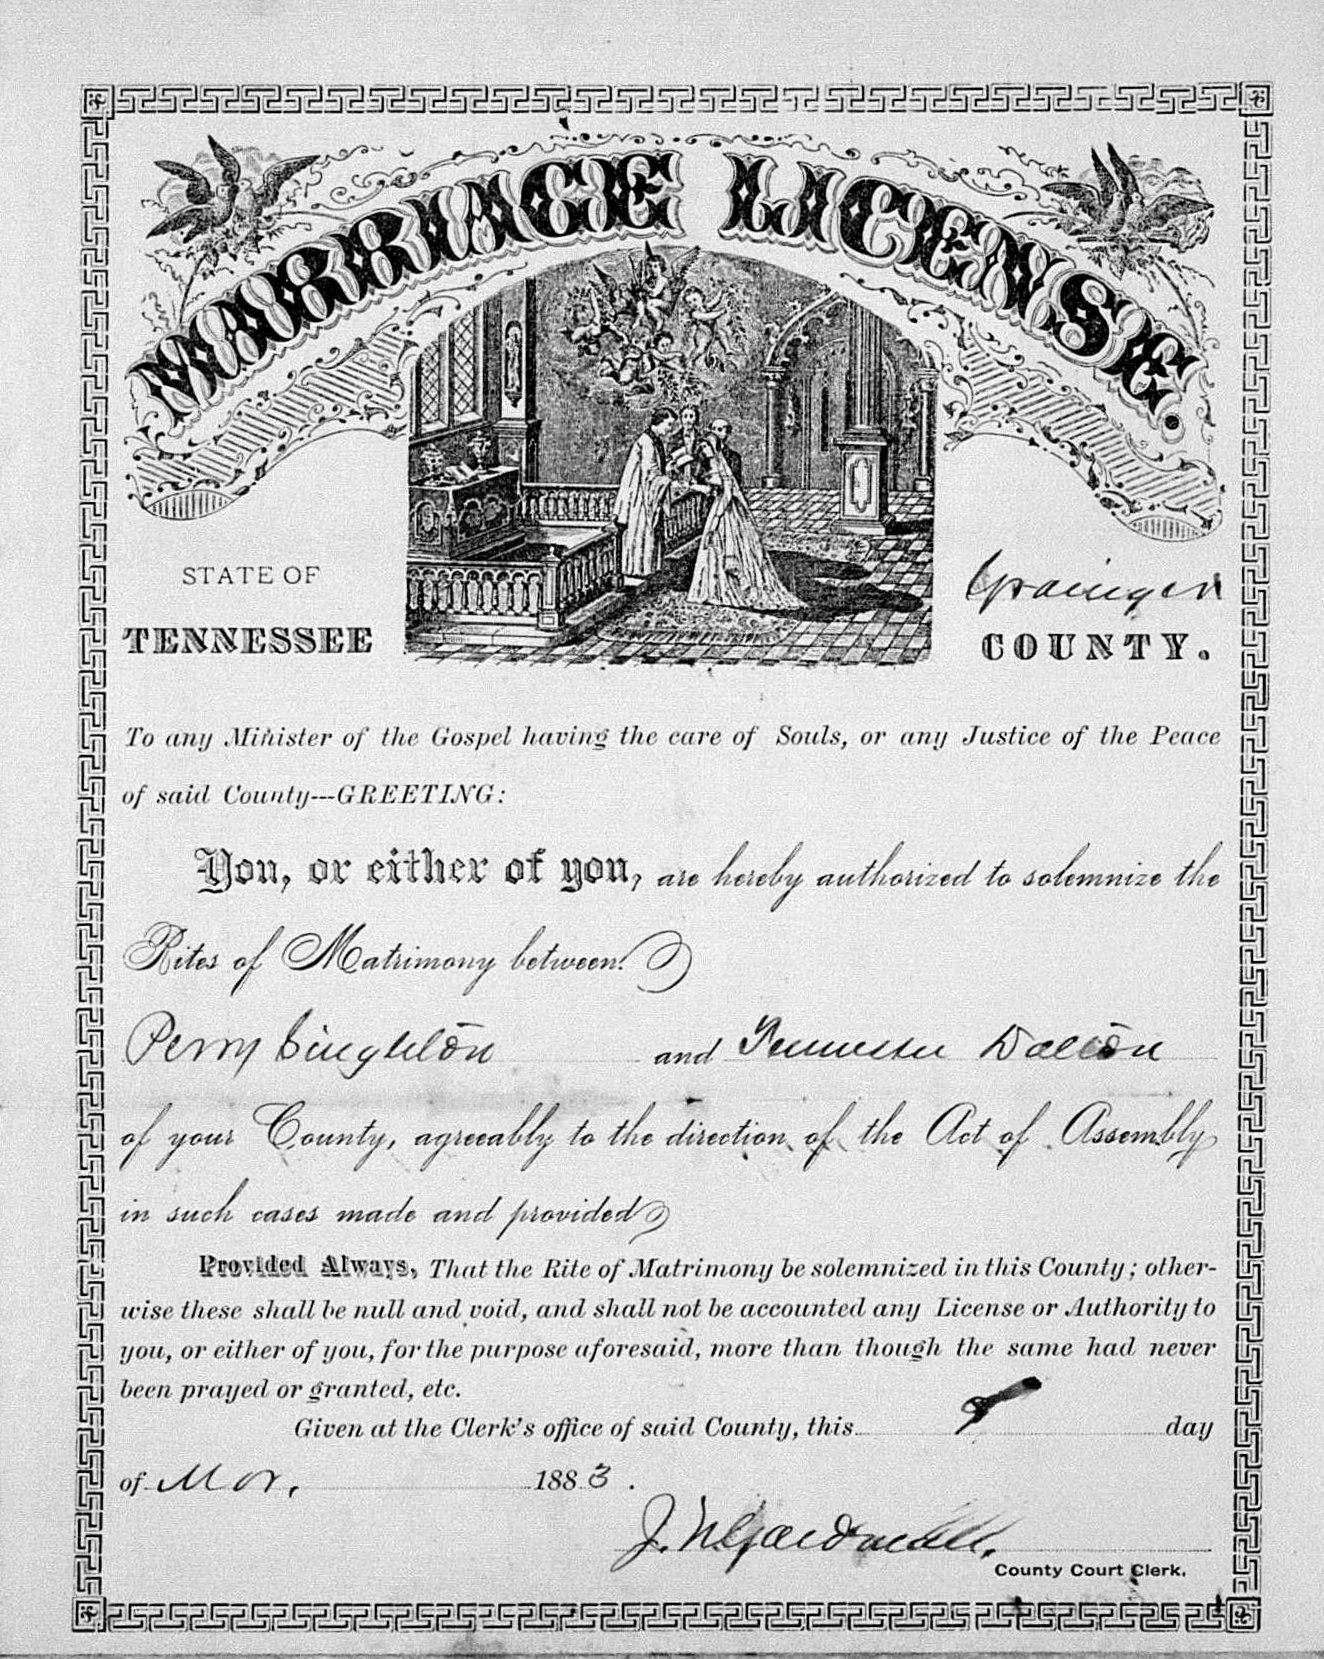 MARRIAGE LICENSE.
STATE OF
TENNESSEE
Grainger
COUNTY.
To any Minister of the Gospel having the care of Souls, or any Justice of the Peace
of said County---GREETING:
You, or either of you, are hereby authorized to solemnize the
Rites of Matrimony between
Perry Singleton and Tennessee Dalton
of your County, agreeably to the direction of the Act of Assembly
in such cases made and provided
Provided Always, That the Rite of Matrimony be solemnized in this County; other-
wise these shall be null and void, and shall not be accounted any License or Authority to
you, or either of you, for the purpose aforesaid, more than though the same had never
been prayed or granted, etc.
Given at the Clerk's office of said County, this day
of 1883.
J.
County Court Clerk.